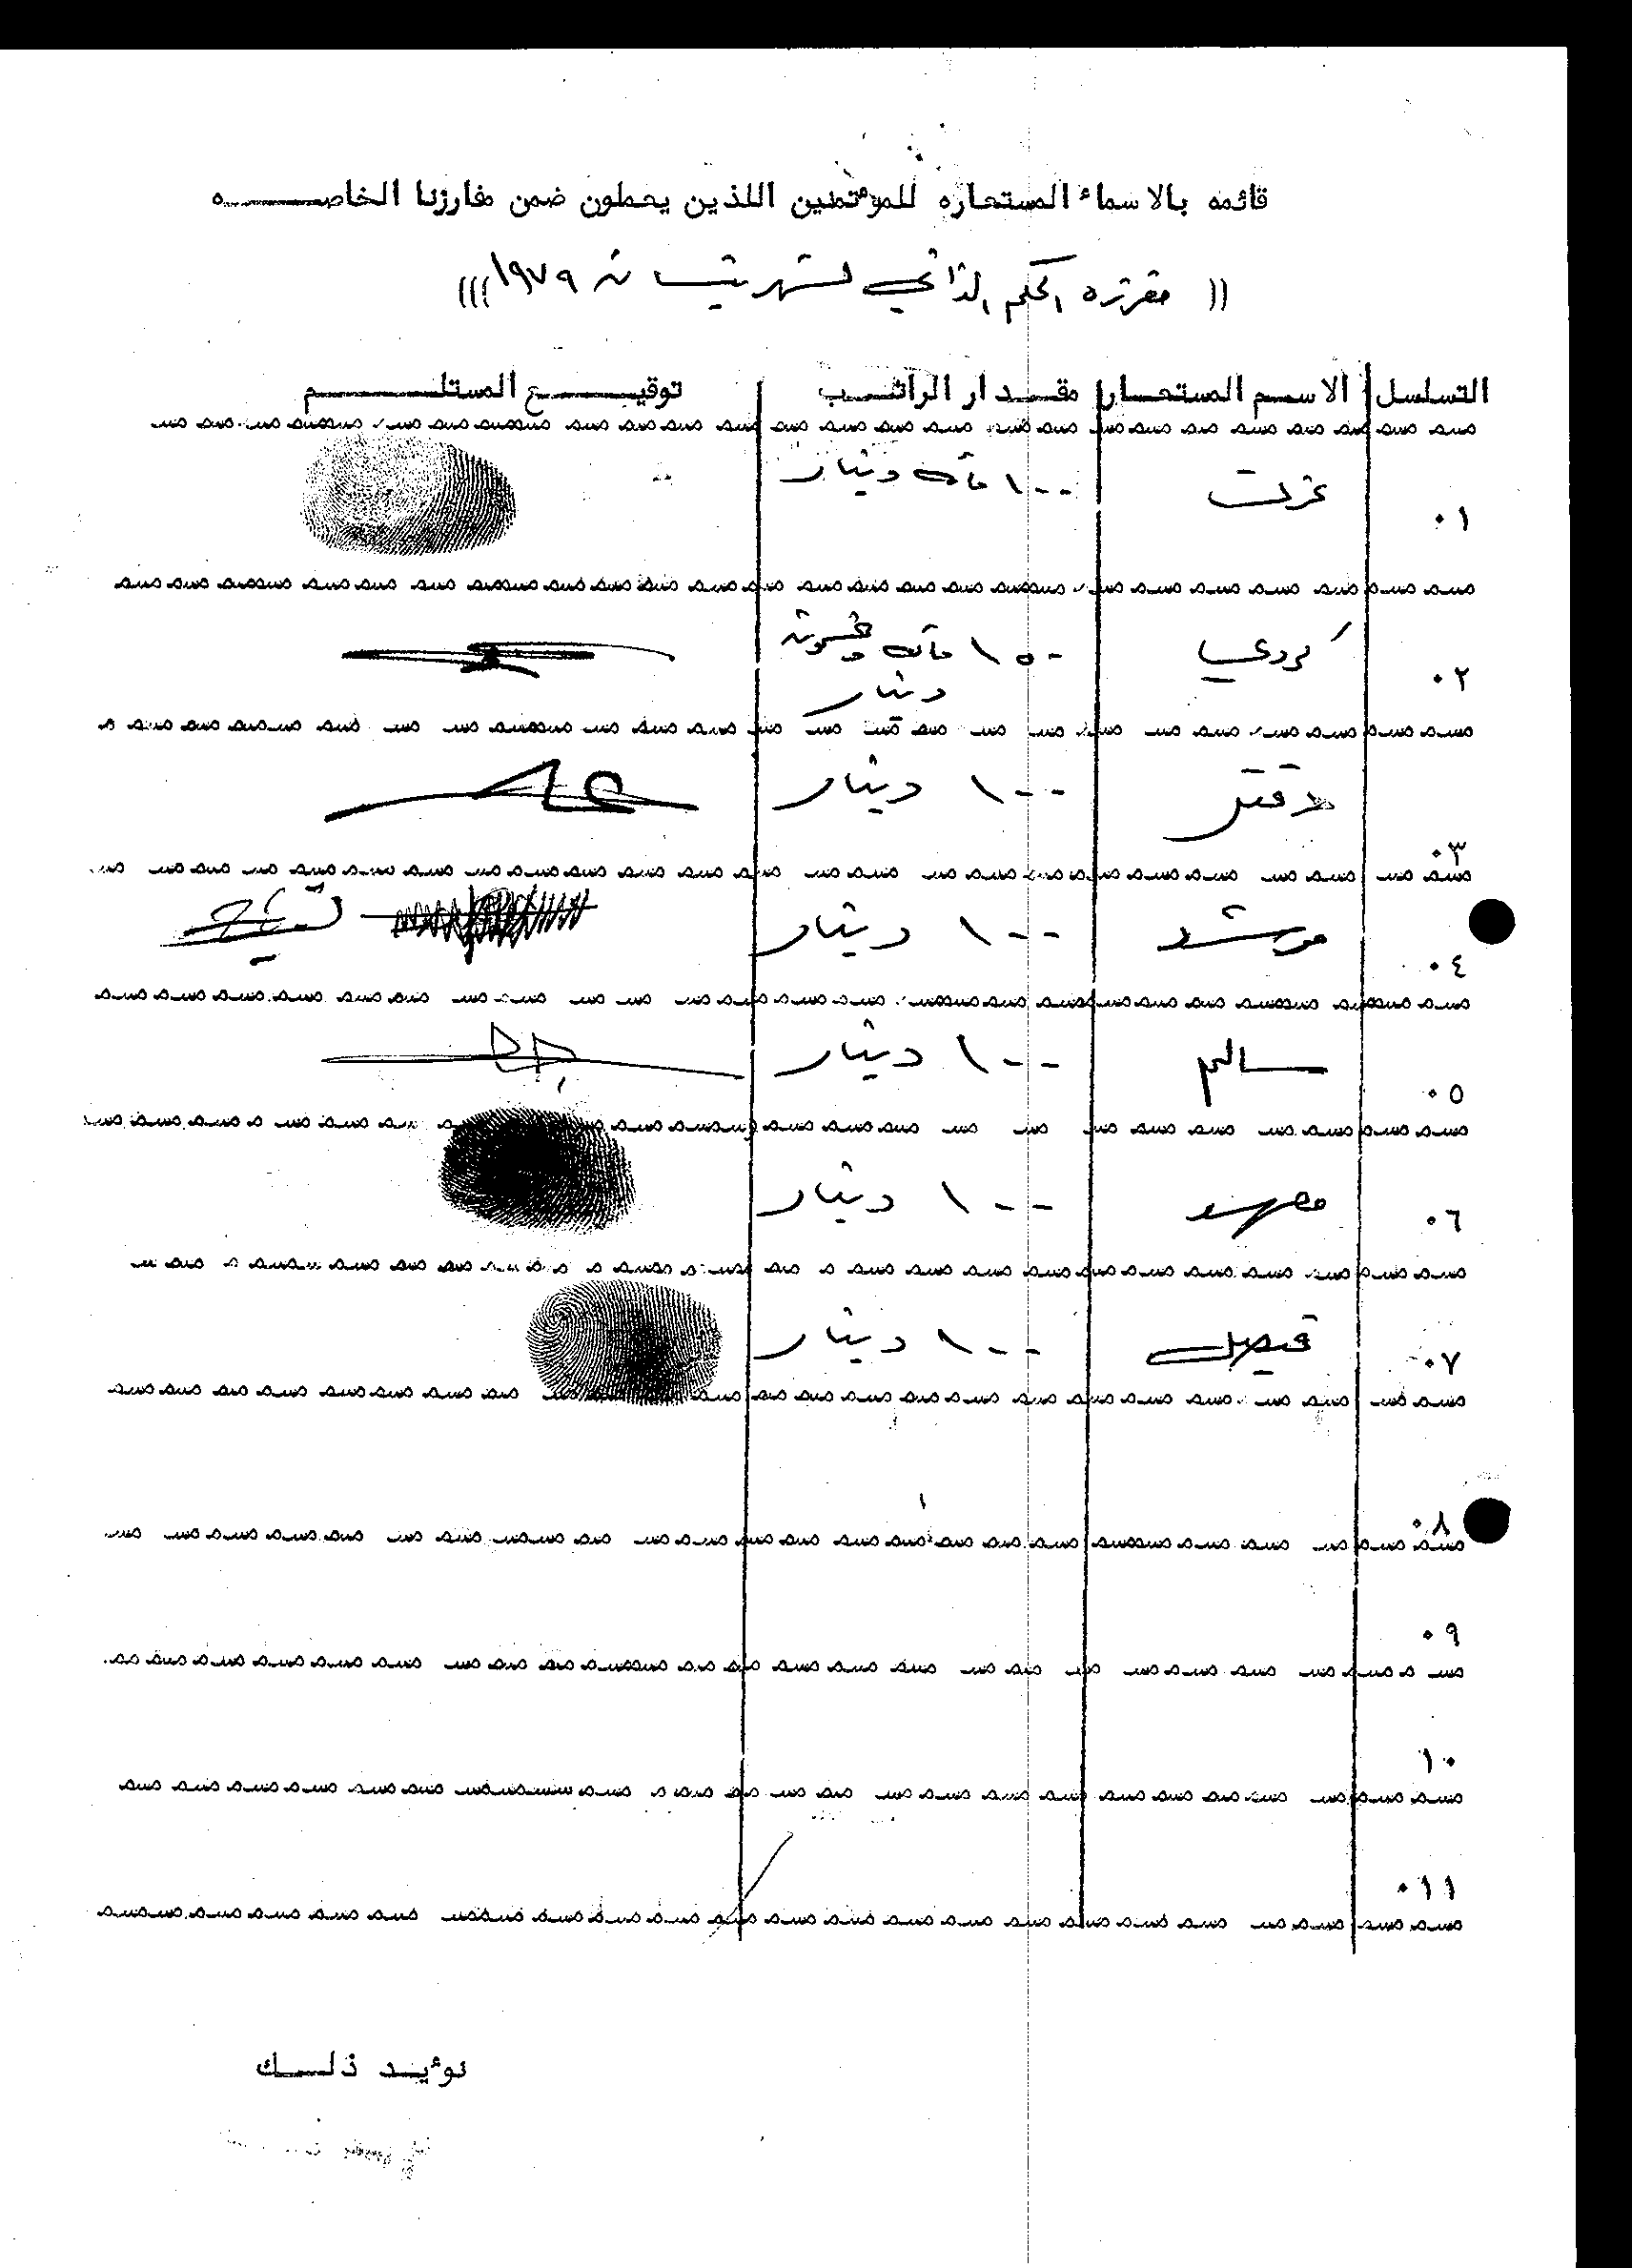 قائمه بالاسماء المستعاره للموءتمنين اللذين يعملون ضمن مفارزنا الخاصـــه
(( مفرزه الحكم الذاتي لشهر نيسان ١٩٧٩)))
التسلسل الاسـم المستعـار مقـدار الراتـب توقيـع المستلـم
٠١ عزت ١٠٠ مائه دينار
٠٢ كردي ١٥٠ مائه وخمسون
دينار
٠٣ ١٠٠ دينار
٠٤ مرشد ١٠٠ دينار
٠٥ سالم ١٠٠ دينار
٠٦ ١٠٠ دينار
٠٧ فيصل ١٠٠ دينار
٠٨
٠٩
١٠٠
٠١١
نوءيـد ذلـك